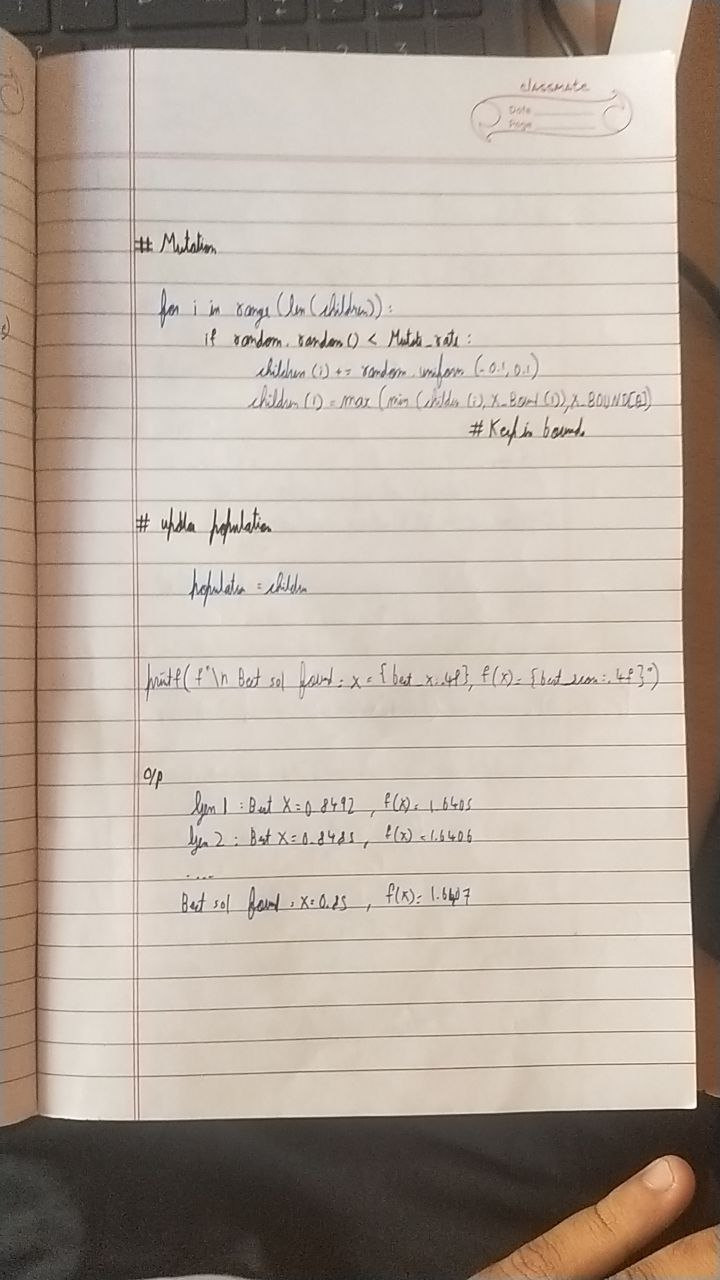 classmate
Date
Page
# Mutation
for i in range (len (children)):
if random.random() < Mutate_rate:
children (i) += random.uniform (-0.1, 0.1)
children (i) = max (min (childre (i), X_Bound (1)), X_BOUND[0])
# Keep in bounds
# update population
population = children
printf( f"\n Best sol found: x = {best_x:.4f}, f(x) = {best_score:.4f}")
O/P
Gen 1 : Best X = 0.8492 , f(x) = 1.6405
Gen 2 : Best X = 0.8485 , f(x) = 1.6406
....
Best sol found : X = 0.85 , f(x) = 1.6407